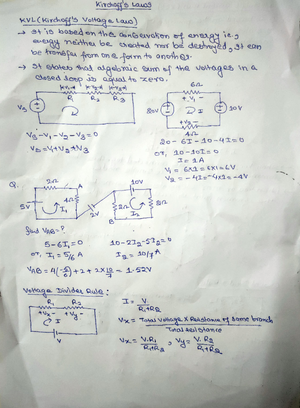 Kirchoff's Laws
KVL (Kirchoff's Voltage Law)
→ It is based on the conservation of energy i.e,
energy neither be created nor be destroyed, It can
be transfer from one form to another.
→ It states that algebraic sum of the voltages in a
closed loop is equal to zero.
R1 R2 R3
VS
6Ω
+ V1 -
20V I 10V
+ V2 -
4Ω
VS - V1 - V2 - V3 = 0
VS = V1 + V2 + V3
20 - 6I - 10 - 4I = 0
or, 10 - 10I = 0
I = 1A
V1 = 6×I = 6×1 = 6V
V2 = -4I = -4×1 = -4V
Q.
2Ω A 10V
5V I1 4Ω 2Ω I2 5Ω
2V B
find VAB = ?
5 - 6I1 = 0
or, I1 = 5/6 A
10 - 2I2 - 5I2 = 0
I2 = 10/7 A
Voltage Divider Rule:
R1 R2
+ Vx - + Vy -
I
V
I = V / R1+R2
Vx = Total Voltage × Resistance of same branch / Total resistance
Vx = V.R1 / R1+R2 , Vy = V.R2 / R1+R2